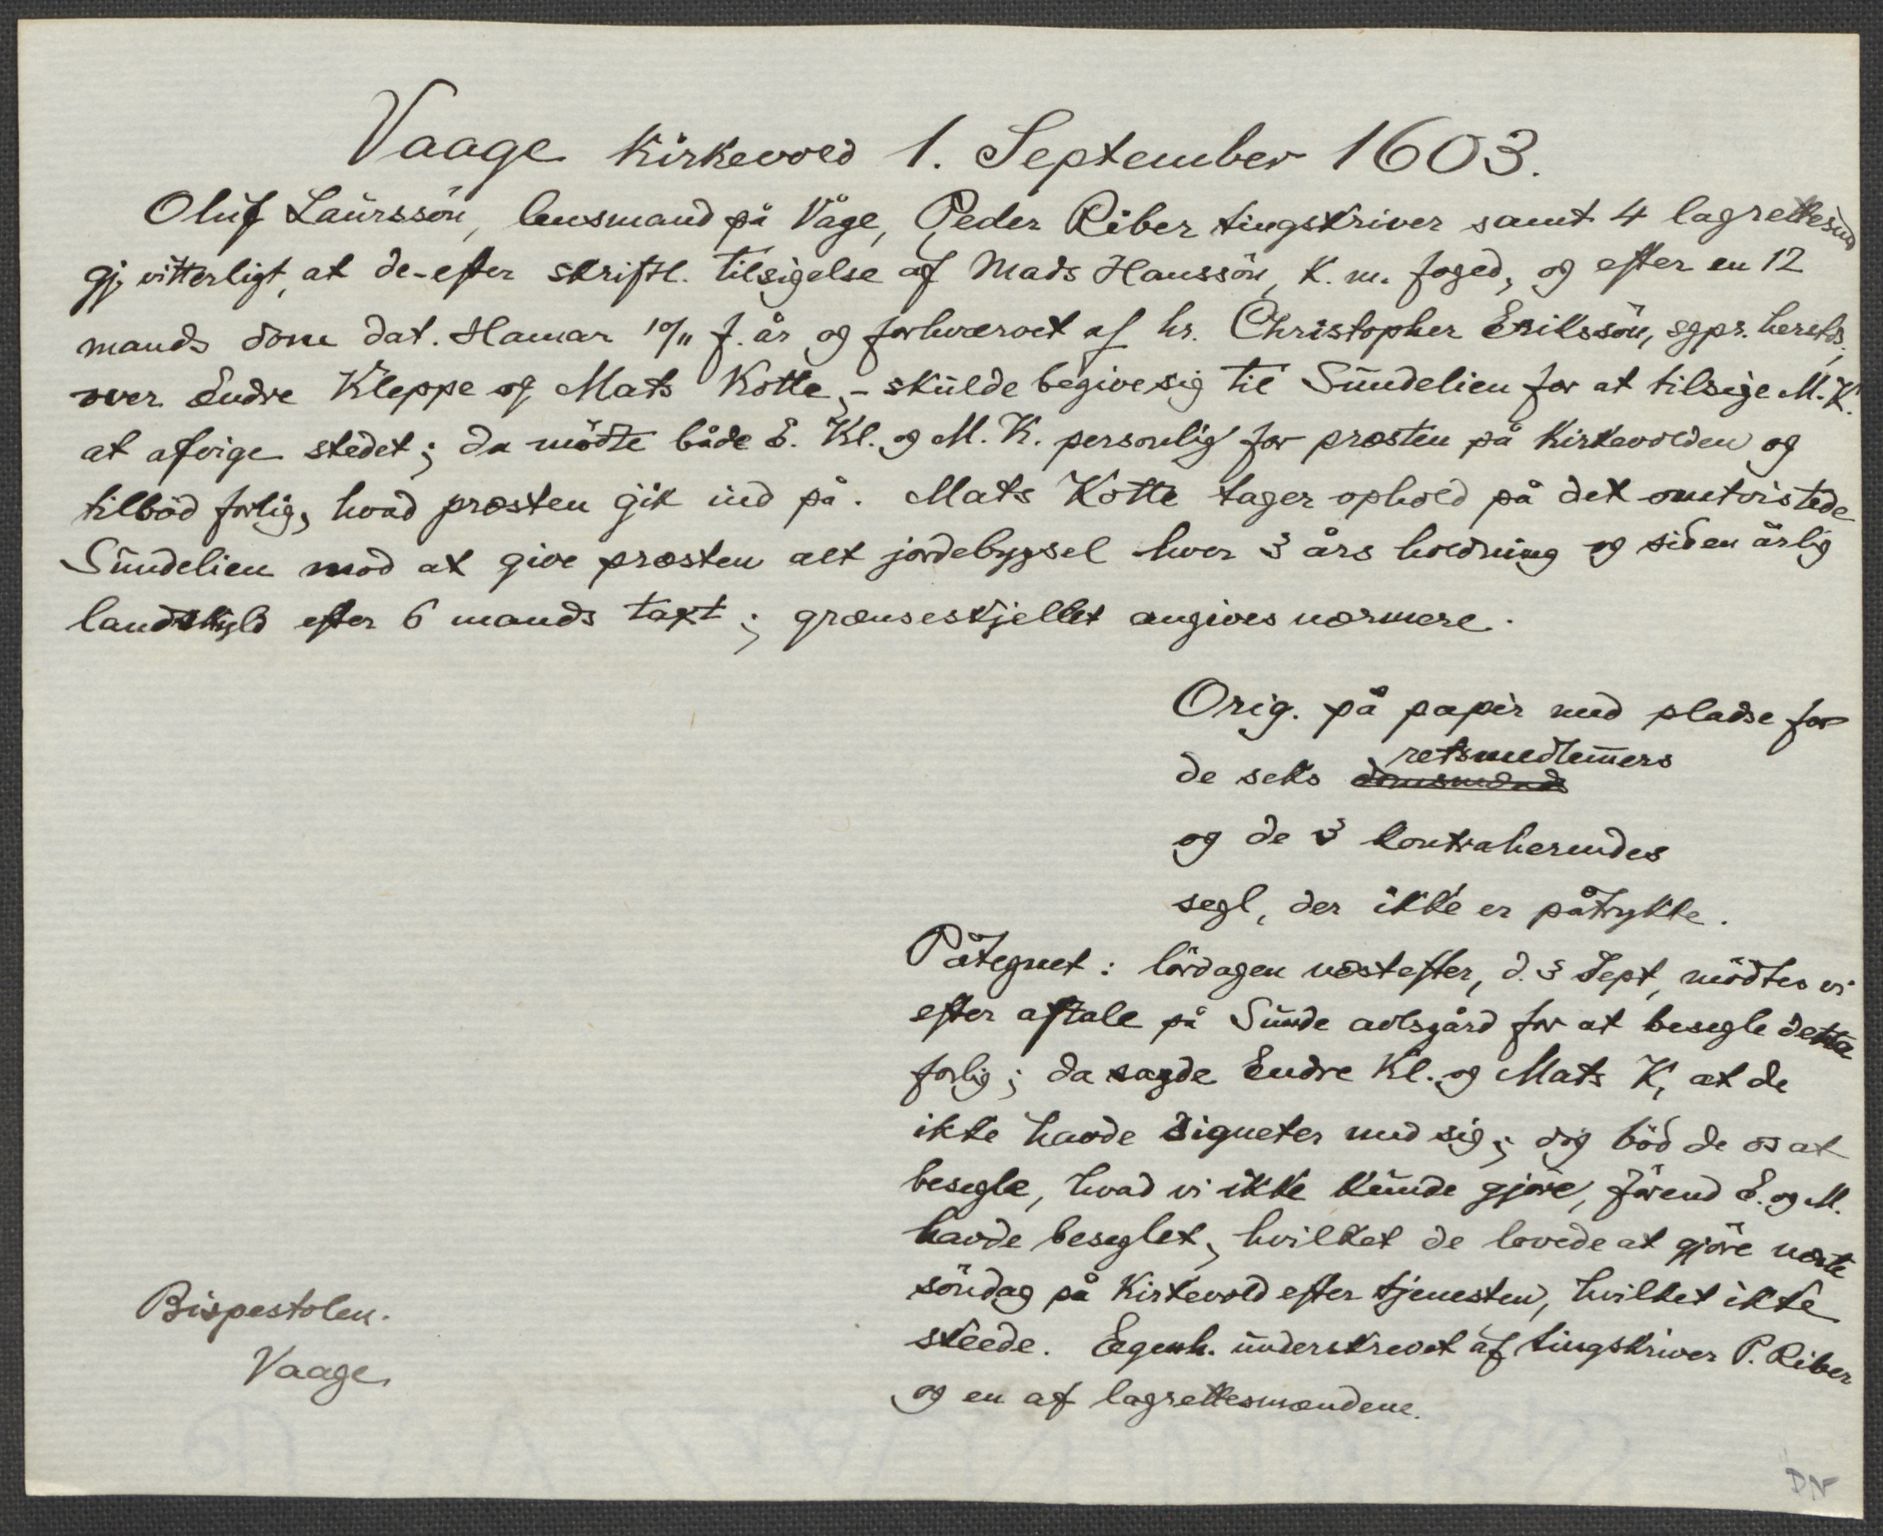 Vaage Kirkevold 1. September 1603.
Oluf Laurssön, lensmand på Våge, Peder Riber tingskriver samt 4 lagrettesmd
gj. vitterligt, at de - efter skriftl. tilsigelse af Mads Hanssön, K. m. foged, og efter en 12
mands dom dat. Hamar 10/11 f. år og forhværvet af hr. Christopher Erikssön, sgpr. herstds.,
over Endre Kleppe og Mats Kotte, - skulde begive sig til Sundelien for at tilsige M. K.
at afvige stedet; da mödte både E. Kl. og M. K. personlig for præsten på Kirkevolden og
tilböd forlig, hvad præsten gik ind på. Mats Kotte tager ophold på det omtvistede
Sundelien mod at give præsten alt jordebygsel hver 3 års holdning og siden årlig
landskyld efter 6 mands taxt; grænseskjellet angives nærmere.
Orig. på papir med pladse for
retsmedlemmers
de seks domsmænds
og de 3 kontraherendes
segl, der ikke er påtrykte.
Påtegnet: lördagen næstefter, d. 3 Sept, mödtes vi
efter aftale på Sunde avlsgård for at besegle dette
forlig; da sagde Endre Kl. og Mats K, at de
ikke havde signeter med sig; dog böd de os at
besegle, hvad vi ikke kunde gjöre, förend E. og M.
havde beseglet, hvilket de lovede at gjöre næste
söndag på Kirkevold efter tjenesten, hvilket ikke
skeede. Egenh. underskrevet af tingskriver P. Riber
og en af lagrettesmændene.
Bispestolen.
Vaage
DN